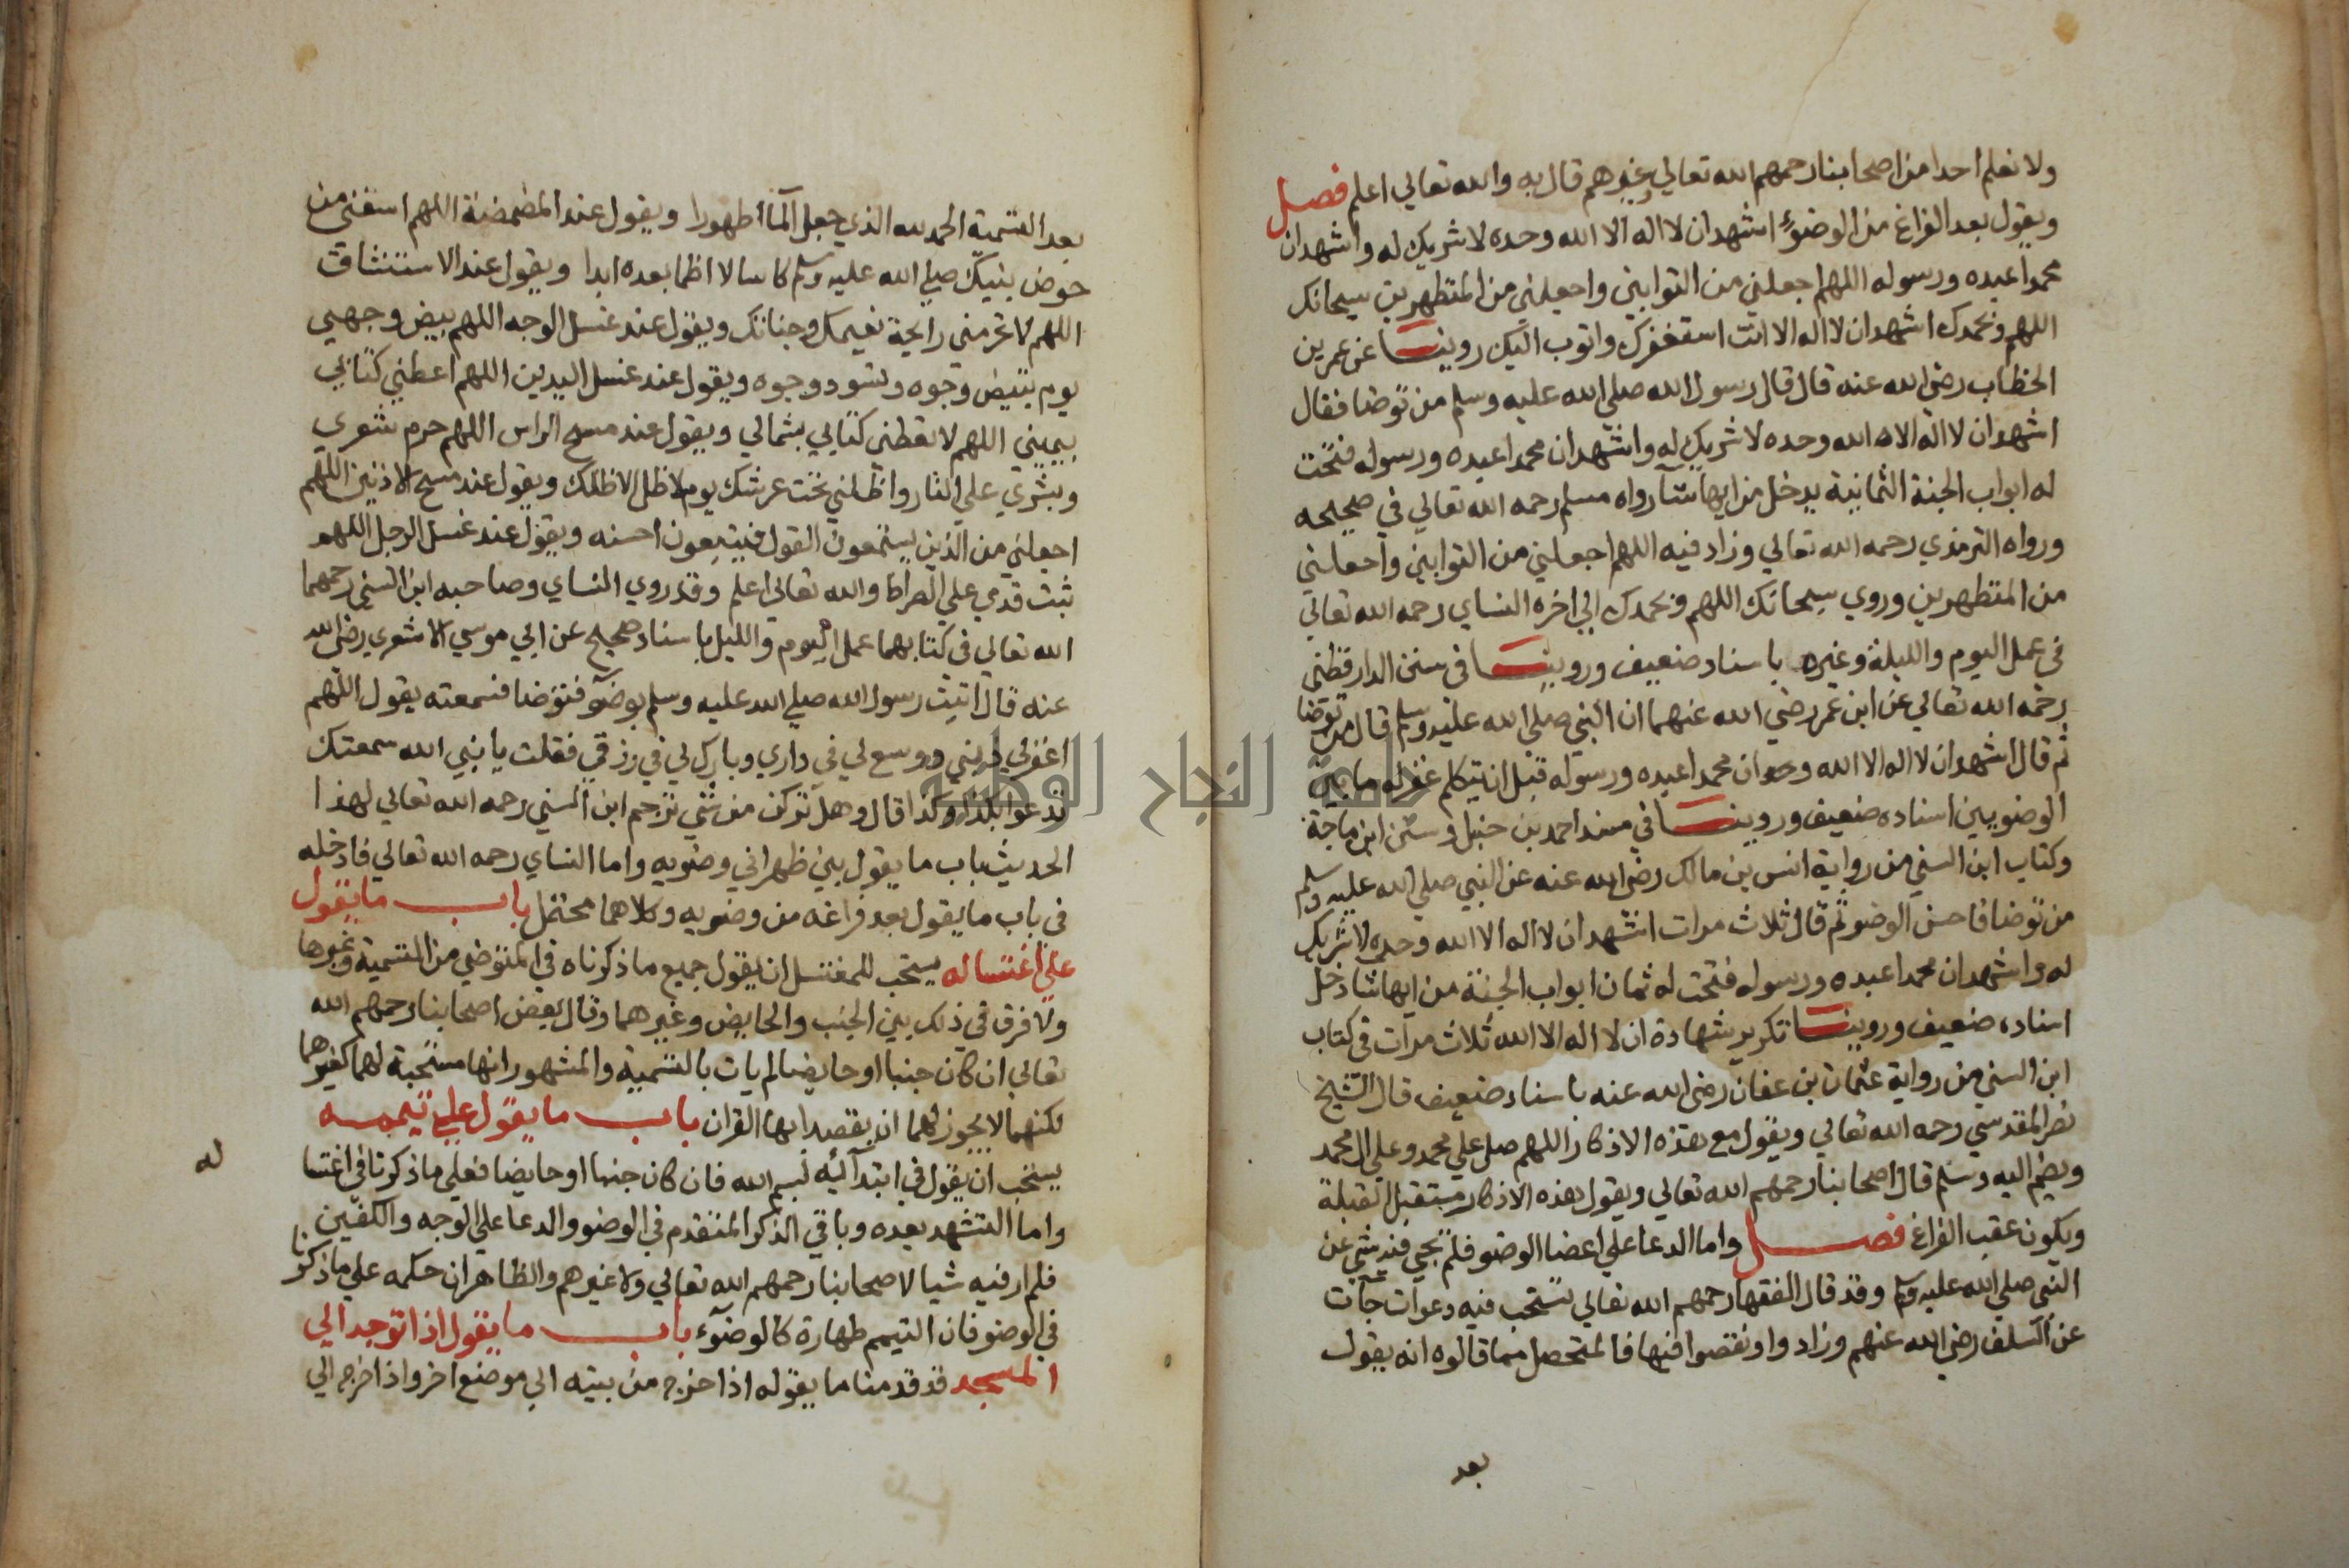 ولا نعلم احدا من اصحابنا رحمهم الله تعالي وغيرهم قال به والله تعالي اعلم فصل
ويقول بعد الفراغ من الوضوء اشهد ان لا اله الا الله وحده لا شريك له واشهد ان
محمدا عبده ورسوله اللهم اجعلني من التوابين واجعلني من المتطهرين سبحانك
اللهم وبحمدك اشهد ان لا اله الا انت استغفرك واتوب اليك روينا عن عمر بن
الخطاب رضي الله عنه قال قال رسول الله صلي الله عليه وسلم من توضا فقال
اشهد ان لا اله الا الله وحده لا شريك له واشهد ان محمدا عبده ورسوله فتحت
له ابواب الجنة الثمانية يدخل من ايها شآ رواه مسلم رحمه الله تعالي في صحيحه
ورواه الترمذي رحمه الله تعالي وزاد فيه اللهم اجعلني من التوابين واجعلني
من المتطهرين وروي سبحانك اللهم وبحمدك الي اخره النساي رحمه الله تعالي
في عمل اليوم والليلة وغيره باسناد ضعيف وروينا في سنن الدارقطني
رحمه الله تعالي عن ابن عمر رضي الله عنهما ان النبي صلي الله عليه وسلم قال من توضا
ثم قال اشهد ان لا اله الا الله وان محمدا عبده ورسوله قبل ان يتكلم غفر له ما بين
الوضويين اسناده ضعيف وروينا في مسند احمد بن حنبل وسنن ابن ماجة
وكتاب ابن السني من رواية انس بن مالك رضي الله عنه عن النبي صلي الله عليه وسلم
من توضا فاحسن الوضو ثم قال ثلاث مرات اشهد ان لا اله الا الله وحده لا شريك
له واشهد ان محمدا عبده ورسوله فتحت له ثمان ابواب الجنة من ايها شا دخل
اسناده ضعيف وروينا تكرير شهادة ان لا اله الا الله ثلاث مرات في كتاب
ابن السني من رواية عثمان بن عفان رضي الله عنه باسناد ضعيف قال الشيخ
نصر المقدسي رحمه الله تعالي ويقول مع هذه الاذكار اللهم صل علي محمد وعلي ال محمد
ويضم اليه وسلم قال اصحابنا رحمهم الله تعالي ويقول هذه الاذكار مستقبل القبلة
ويكون عقب الفراغ فصل واما الدعا علي اعضا الوضو فلم يجي فيه شي عن
النبي صلي الله عليه وسلم وقد قال الفقها رحمهم الله تعالي تستحب فيه دعوات جآت
عن السلف رضي الله عنهم وزادوا ونقصوا فيها فالمتحصل مما قالوه انه يقول
بعد
بعد التسمية الحمد لله الذي جعل المآ طهورا ويقول عند المضمضة اللهم اسقني من
حوض نبيك صلي الله عليه وسلم كاسا لا اظما بعده ابدا ويقول عند الاستنشاق
اللهم لا تحرمني رايحة نعيمك وجناتك ويقول عند غسل الوجه اللهم بيض وجهي
يوم تبيض وجوه وتسود وجوه ويقول عند غسل اليدين اللهم اعطني كتابي
بيميني اللهم لا تعطني كتابي بشمالي ويقول عند مسح الراس اللهم حرم شعري
وبشري علي النار واظلني تحت عرشك يوم لا ظل الا ظلك ويقول عند مسح الاذنين اللهم
اجعلني من الذين يستمعون القول فيتبعون احسنه ويقول عند غسل الرجل اللهم
ثبت قدمي علي الصراط والله تعالي اعلم وقد روي النساي وصاحبه ابن السني رحمهما
الله تعالي في كتابيهما عمل اليوم والليل باسناد صحيح عن ابي موسي الاشعري رضي الله
عنه قال اتيت رسول الله صلي الله عليه وسلم بوضوء فتوضا فسمعته يقول اللهم
اغفر لي ذنبي ووسع لي في داري وبارك لي في رزقي فقلت يا نبي الله سمعتك
تدعو بكذا وكذا قال وهل تركن من شي ترجم ابن السني رحمه الله تعالي لهذا
الحديث باب ما يقول بين ظهراني وضويه واما النساي رحمه الله تعالي فادخله
في باب ما يقول بعد فراغه من وضويه وكلاهما محتمل باب ما يقول
علي اغتساله يستحب للمغتسل ان يقول جميع ما ذكرناه في المتوضي من التسمية وغيرها
ولا فرق في ذلك بين الجنب والحايض وغيرهما وقال بعض اصحابنا رحمهم الله
تعالي ان كان جنبا او حايضا لم يات بالتسمية والمشهور انها مستحبة لهما كغيرهما
لكنهما لا يجوز لهما ان يقصدا بها القران باب ما يقول علي تيممه
يستحب ان يقول في ابتدآئه بسم الله فان كان جنبا او حايضا فعلي ما ذكرنا في اغتسا
له
واما التشهد بعده وباقي الذكر المتقدم في الوضو والدعا علي الوجه والكفين
فلم ار فيه شيا لاصحابنا رحمهم الله تعالي ولا غيرهم والظاهر ان حكمه علي ما ذكرنا
في الوضو فان التيمم طهارة كالوضوء باب ما يقول اذا توجه الي
المسجد قد قدمنا ما يقوله اذا خرج من بيته الي موضع اخر واذا خرج الي